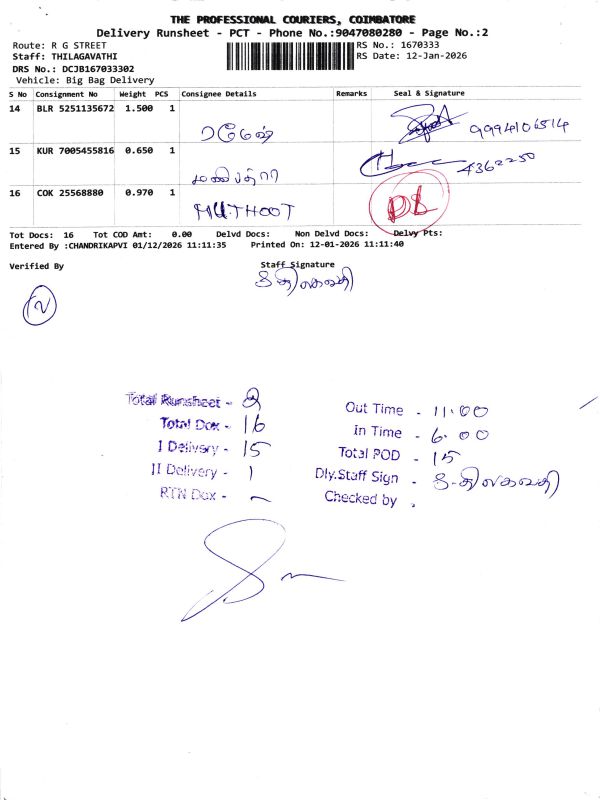 THE PROFESSIONAL COURIERS, COIMBATORE
Delivery Runsheet - PCT - Phone No.:9047080280 - Page No.:2
Route: R G STREET
RS No.: 1670333
Staff: THILAGAVATHI
RS Date: 12-Jan-2026
DRS No.: DCJB167033302
Vehicle: Big Bag Delivery
S No Consignment No Weight PCS Consignee Details Remarks Seal & Signature
14 BLR 5251135672 1.500 1
ரமேஷ் 9994106514
15 KUR 7005455816 0.650 1
4362250
16 COK 25568880 0.970 1
MUTHOOT DL
Tot Docs: 16 Tot COD Amt: 0.00 Delvd Docs: Non Delvd Docs: Delvy Pts:
Entered By :CHANDRIKAPVI 01/12/2026 11:11:35 Printed On: 12-01-2026 11:11:40
Verified By Staff Signature
சி.திலகவதி
Total Runsheet - 2
Out Time - 11.00
Total Dox - 16
In Time - 6.00
I Delivery - 15
Total POD - 15
II Delivery - 1
Dly.Staff Sign - சி.திலகவதி
RTN Dox - –
Checked by .